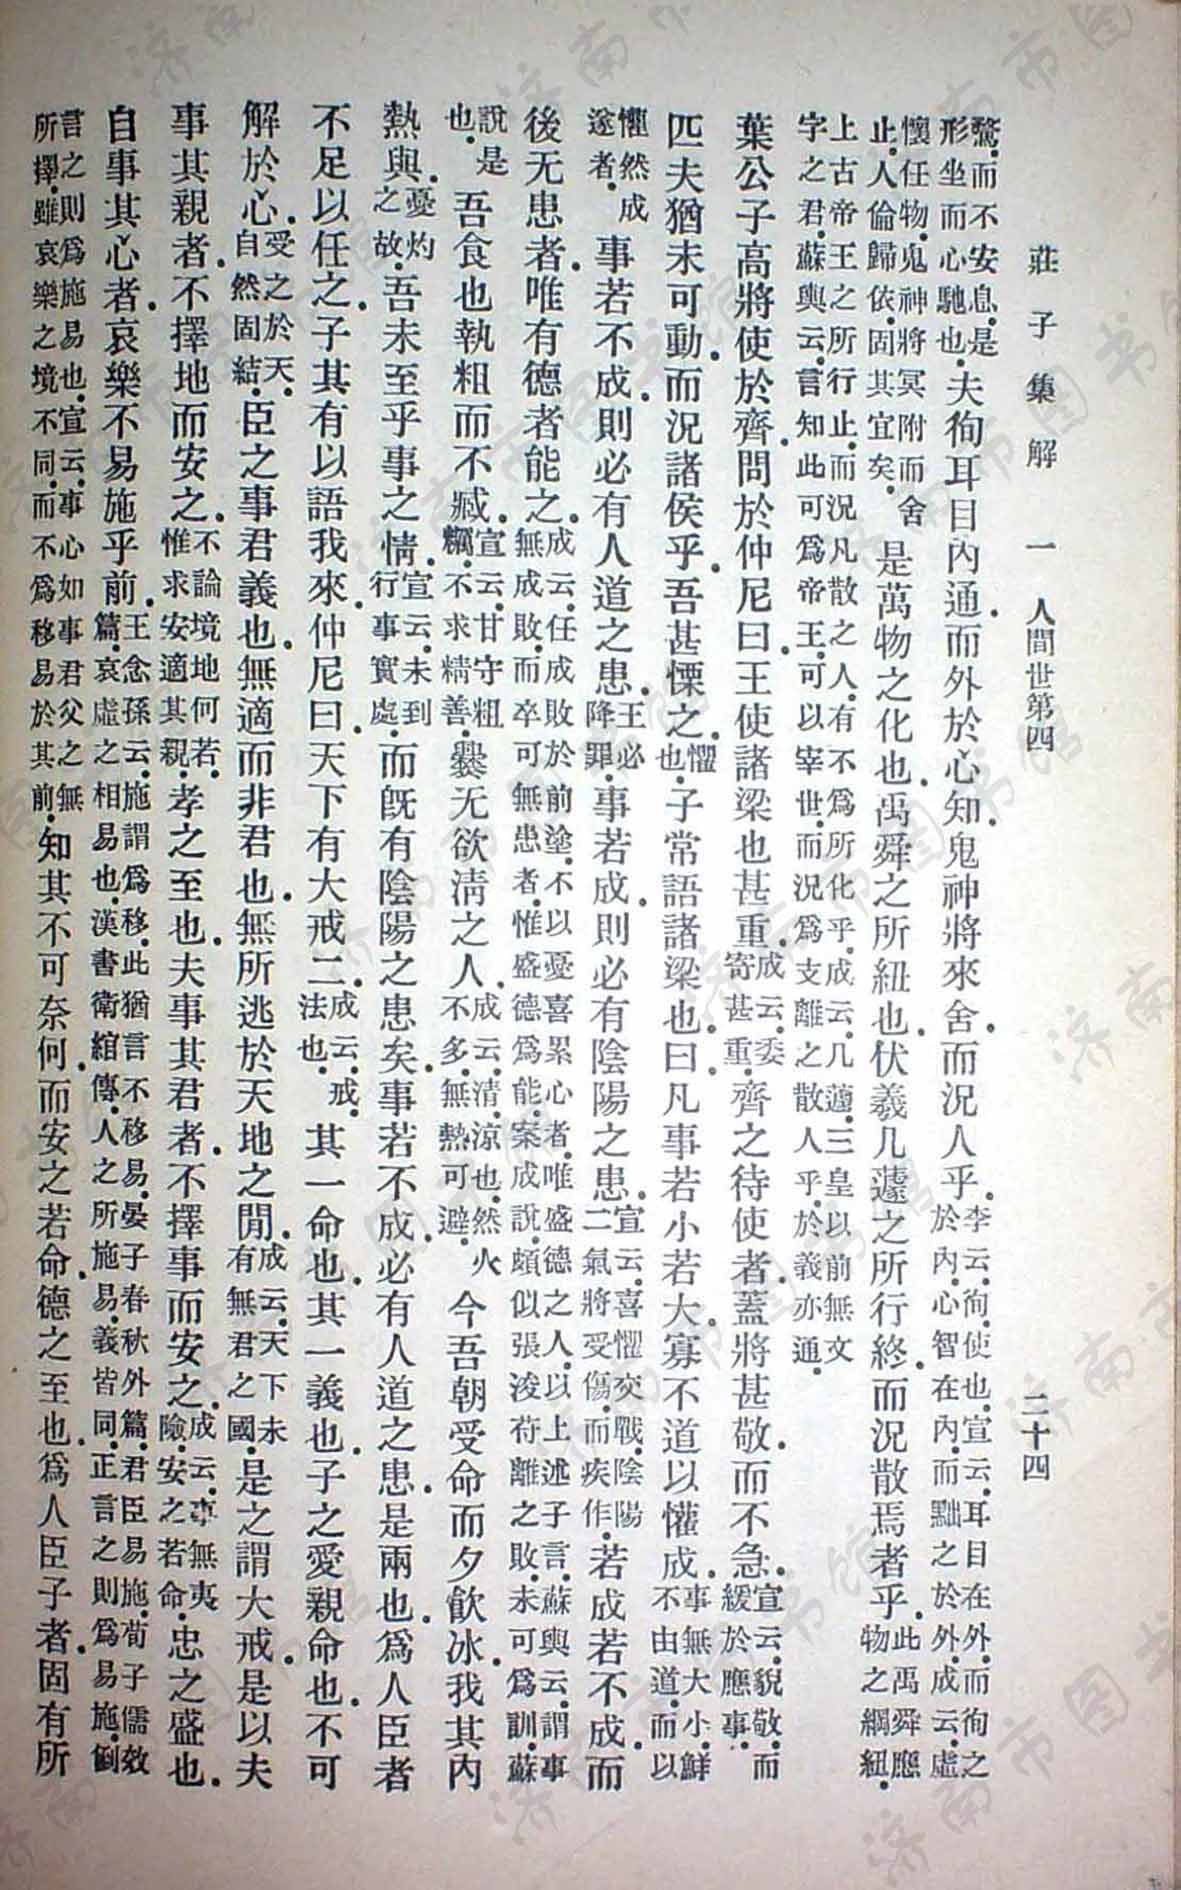 莊子集解　一　人間世第四　二十四
騖.而不安息.是形坐而心馳也.夫徇耳目內通.而外於心知.鬼神將來舍.而況人乎.李云.徇.使也.宣云.耳目在外.而徇之於內.心智在內.而黜之於外.成云.虛
懷任物.鬼神將冥附而舍止.人倫歸依.固其宜矣.是萬物之化也.禹舜之所紐也.伏羲几蘧之所行終.而況散焉者乎.此禹舜應物之綱紐.
上古帝王之所行止.而況凡散之人.有不爲所化乎.成云.几蘧.三皇以前無文字之君.蘇輿云.言知此可爲帝王.可以宰世.而況爲支離之散人乎.於義亦通.
葉公子高將使於齊.問於仲尼曰.王使諸梁也甚重.成云.委寄甚重.齊之待使者.蓋將甚敬.而不急.宣云.貌敬而緩於應事.
匹夫猶未可動.而況諸侯乎.吾甚慄之.懼也.子常語諸梁也.曰.凡事若小若大.寡不道以懽成.事無大小.鮮不由道.而以
懽然成遂者.事若不成.則必有人道之患.王必降罪.事若成.則必有陰陽之患.宣云.喜懼交戰.陰陽二氣將受傷.而疾作.若成若不成.而
後无患者.唯有德者能之.成云.任成敗於前塗.不以憂喜累心者.唯盛德之人.以上述子言.蘇輿云.謂事無成敗.而卒可無患者.惟盛德爲能.案成說.頗似張浚苻離之敗.未可爲訓.蘇
說是也.吾食也執粗而不臧.宣云.甘守粗糲.不求精善.爨无欲清之人.成云.清涼也.然火不多.無熱可避.今吾朝受命而夕飲冰.我其內
熱與.憂灼之故.吾未至乎事之情.宣云.未到行事實處.而既有陰陽之患矣.事若不成.必有人道之患.是兩也.爲人臣者
不足以任之.子其有以語我來.仲尼曰.天下有大戒二.成云.戒.法也.其一命也.其一義也.子之愛親命也.不可
解於心.受之於天.自然固結.臣之事君義也.無適而非君也.無所逃於天地之閒.成云.天下未有無君之國.是之謂大戒.是以夫
事其親者.不擇地而安之.不論境地何若.惟求安適其親.孝之至也.夫事其君者.不擇事而安之.成云.事無夷險.安之若命.忠之盛也.
自事其心者.哀樂不易施乎前.王念孫云.施謂爲移.此猶言不移易.晏子春秋外篇.君臣易施.荀子儒效篇.哀虛之相易也.漢書衛綰傳.人之所施易.義皆同.正言之則爲易施.倒
言之則爲施易也.宣云.事心如事君父之無所擇.雖哀樂之境不同.而不爲移易於其前.知其不可奈何.而安之若命.德之至也.爲人臣子者.固有所